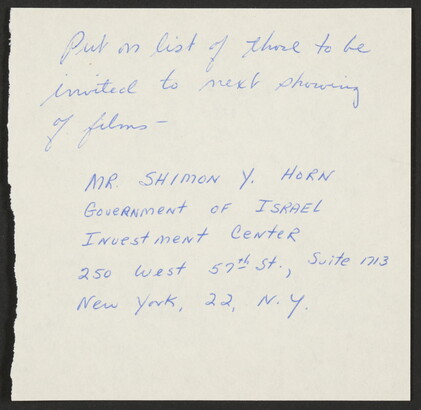 Put on list of those to be
invited to next showing
of films –
MR. SHIMON Y. HORN
GOVERNMENT OF ISRAEL
INVESTMENT CENTER
250 West 57th St., Suite 1713
New York, 22, N.Y.